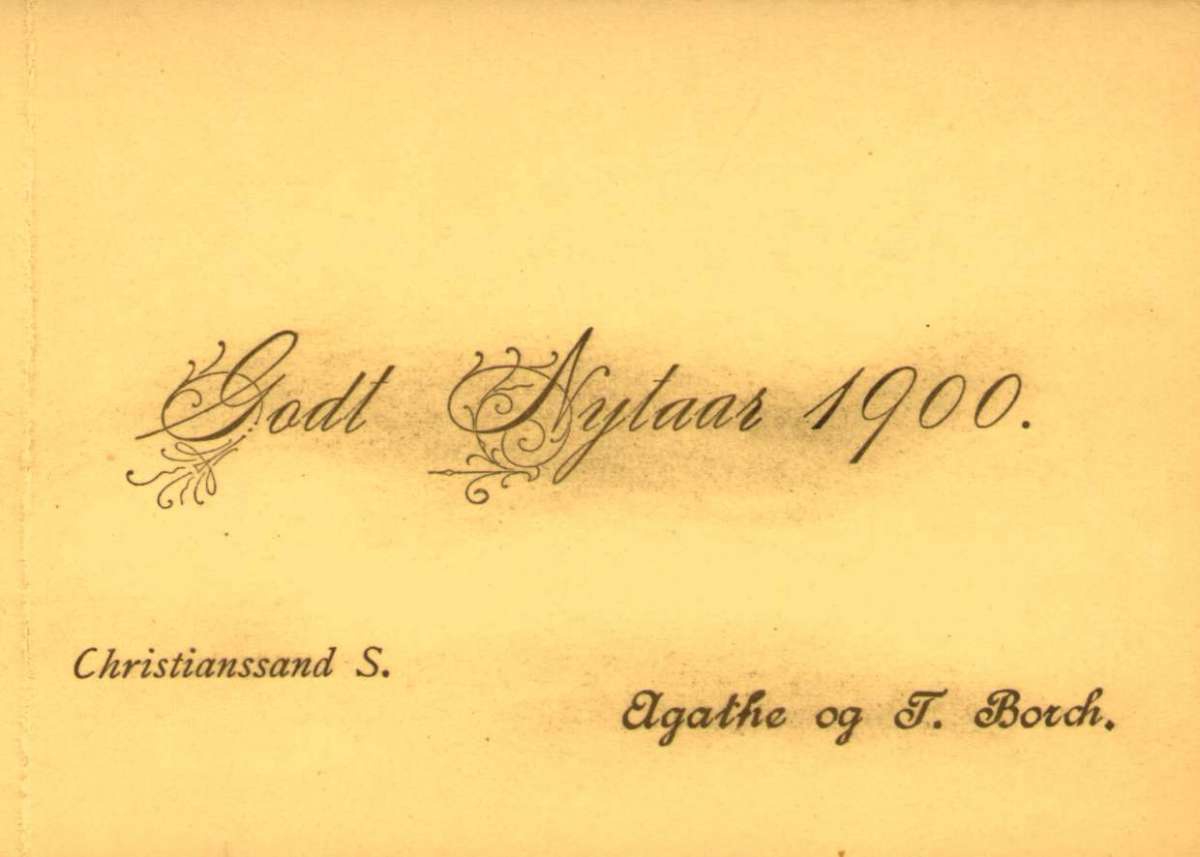 Godt Nytaar 1900.
Christianssand S.
Agathe og T. Borch.